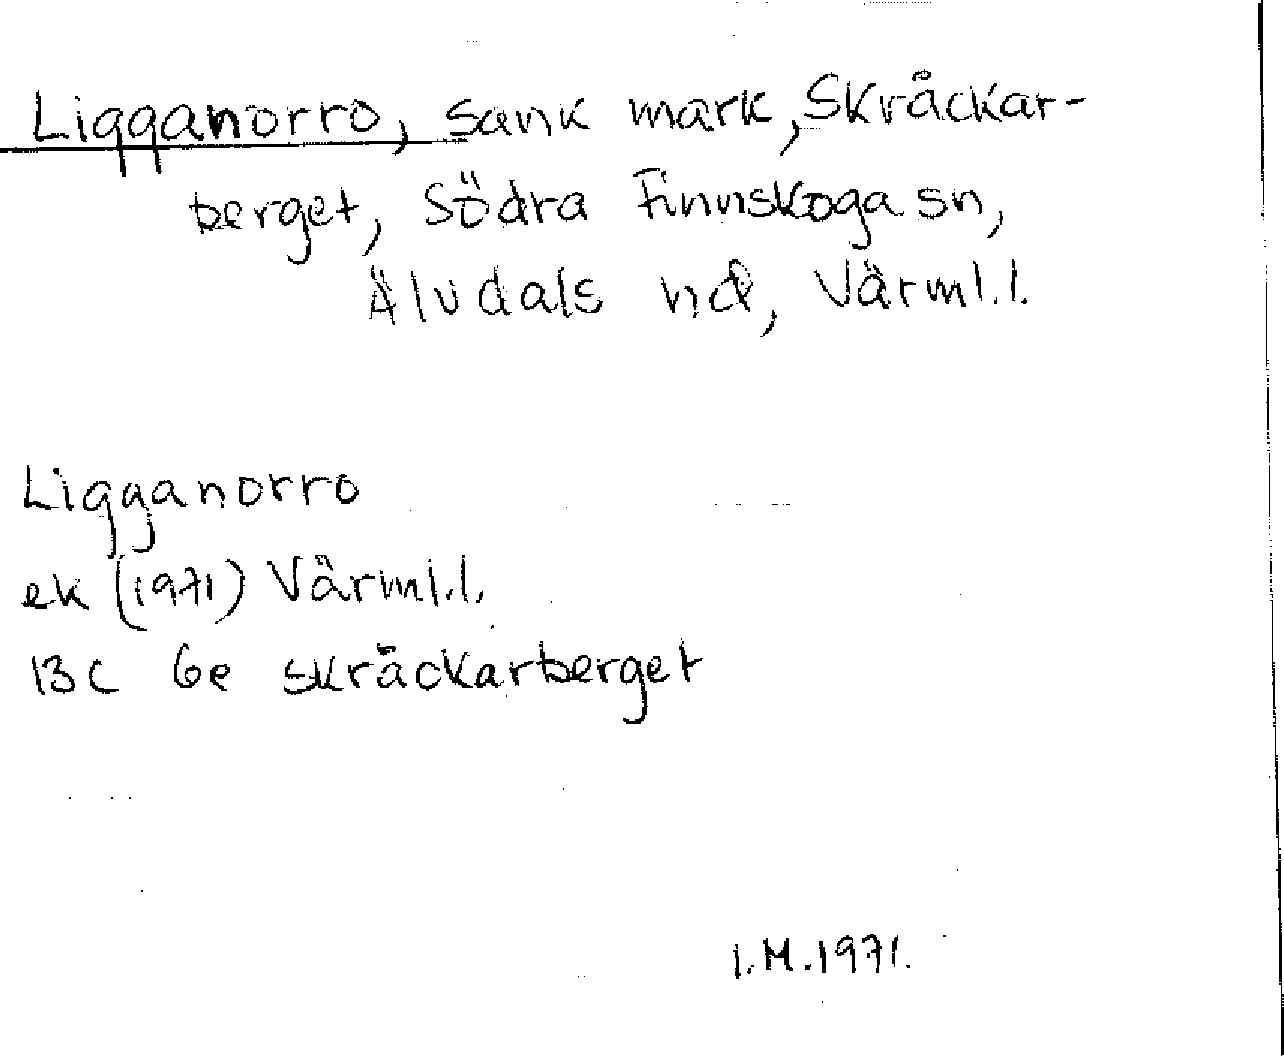 Ligganorro, sank mark, Skråckar-
berget, Södra Finnskoga sn,
Älvdals hd, Värml.l.
Ligganorro
ek (1971) Värml.l.
13C 6e Skråckarberget
I.M.1971.